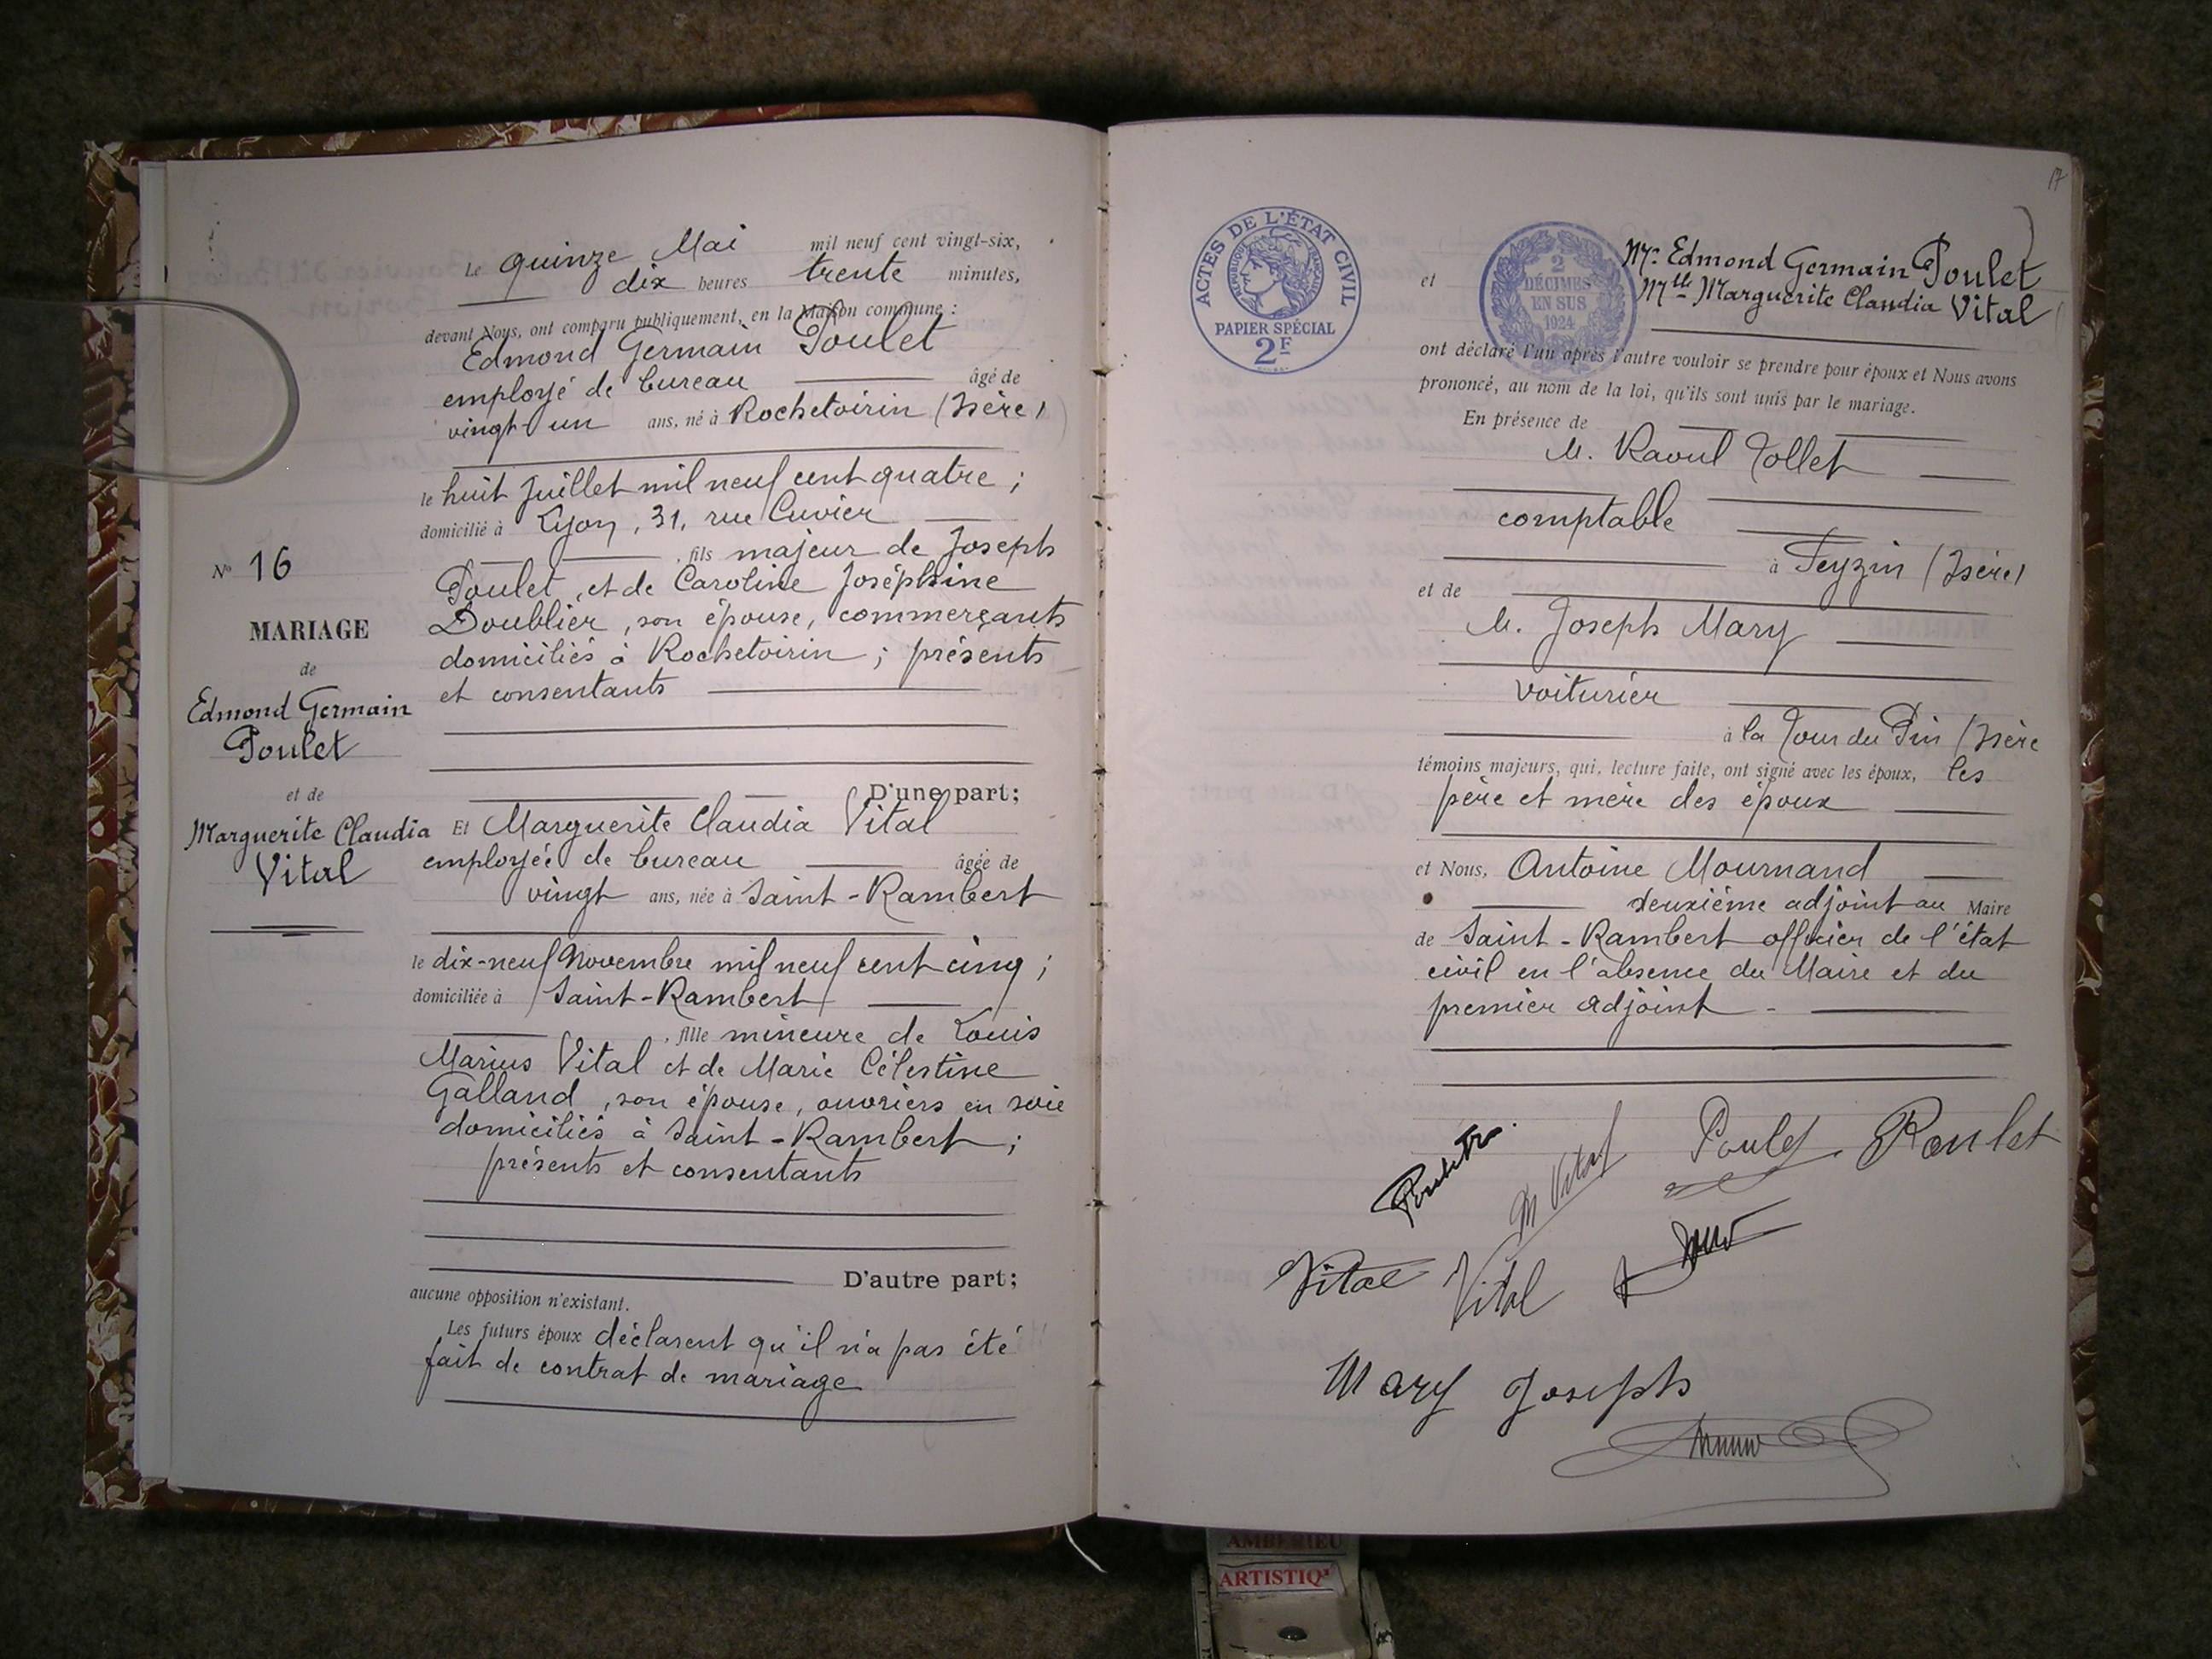 Le quinze Mai mil neuf cent vingt-six,
dix heures trente minutes,
devant Nous, ont comparu publiquement, en la Maison commune :
Edmond Germain Poulet
employé de bureau âgé de
vingt un ans, né à Rochetoirin (Isère)
le huit juillet mil neuf cent quatre ;
domicilié à Lyon, 31, rue Cuvier
, fils majeur de Joseph
Poulet, et de Caroline Joséphine
Doublier, son épouse, commerçants
domiciliés à Rochetoirin ; présents
et consentants
D'une part;
Et Marguerite Claudia Vital
employée de bureau âgée de
vingt ans, née à Saint-Rambert
le dix-neuf Novembre mil neuf cent cinq ;
domiciliée à Saint-Rambert
, fille mineure de Louis
Marius Vital et de Marie Célestine
Galland, son épouse, ouvriers en soie
domiciliés à Saint-Rambert ;
présents et consentants
D'autre part;
aucune opposition n'existant.
Les futurs époux déclarent qu'il n'a pas été
fait de contrat de mariage
No 16
MARIAGE
de
Edmond Germain
Poulet
et de
Marguerite Claudia
Vital
17
ACTES DE L'ÉTAT CIVIL
RÉPUBLIQUE FRANÇAISE
PAPIER SPÉCIAL
2F
2
DÉCIMES
EN SUS
1924
et Mr. Edmond Germain Poulet
Mlle Marguerite Claudia Vital
ont déclaré l'un après l'autre vouloir se prendre pour époux et Nous avons
prononcé, au nom de la loi, qu'ils sont unis par le mariage.
En présence de
M. Raoul Tollet
comptable
à Feyzin (Isère)
et de
M. Joseph Mary
voiturier
à la Tour du Pin (Isère
témoins majeurs, qui, lecture faite, ont signé avec les époux, les
père et mère des époux
et Nous, Antoine Mournand
deuxième adjoint au Maire
de Saint-Rambert officier de l'état
civil en l'absence du Maire et du
premier adjoint -
M Vital Poulet Poulet
Vital Vital
Mary Joseph
AMBERIEU
ARTISTIQ